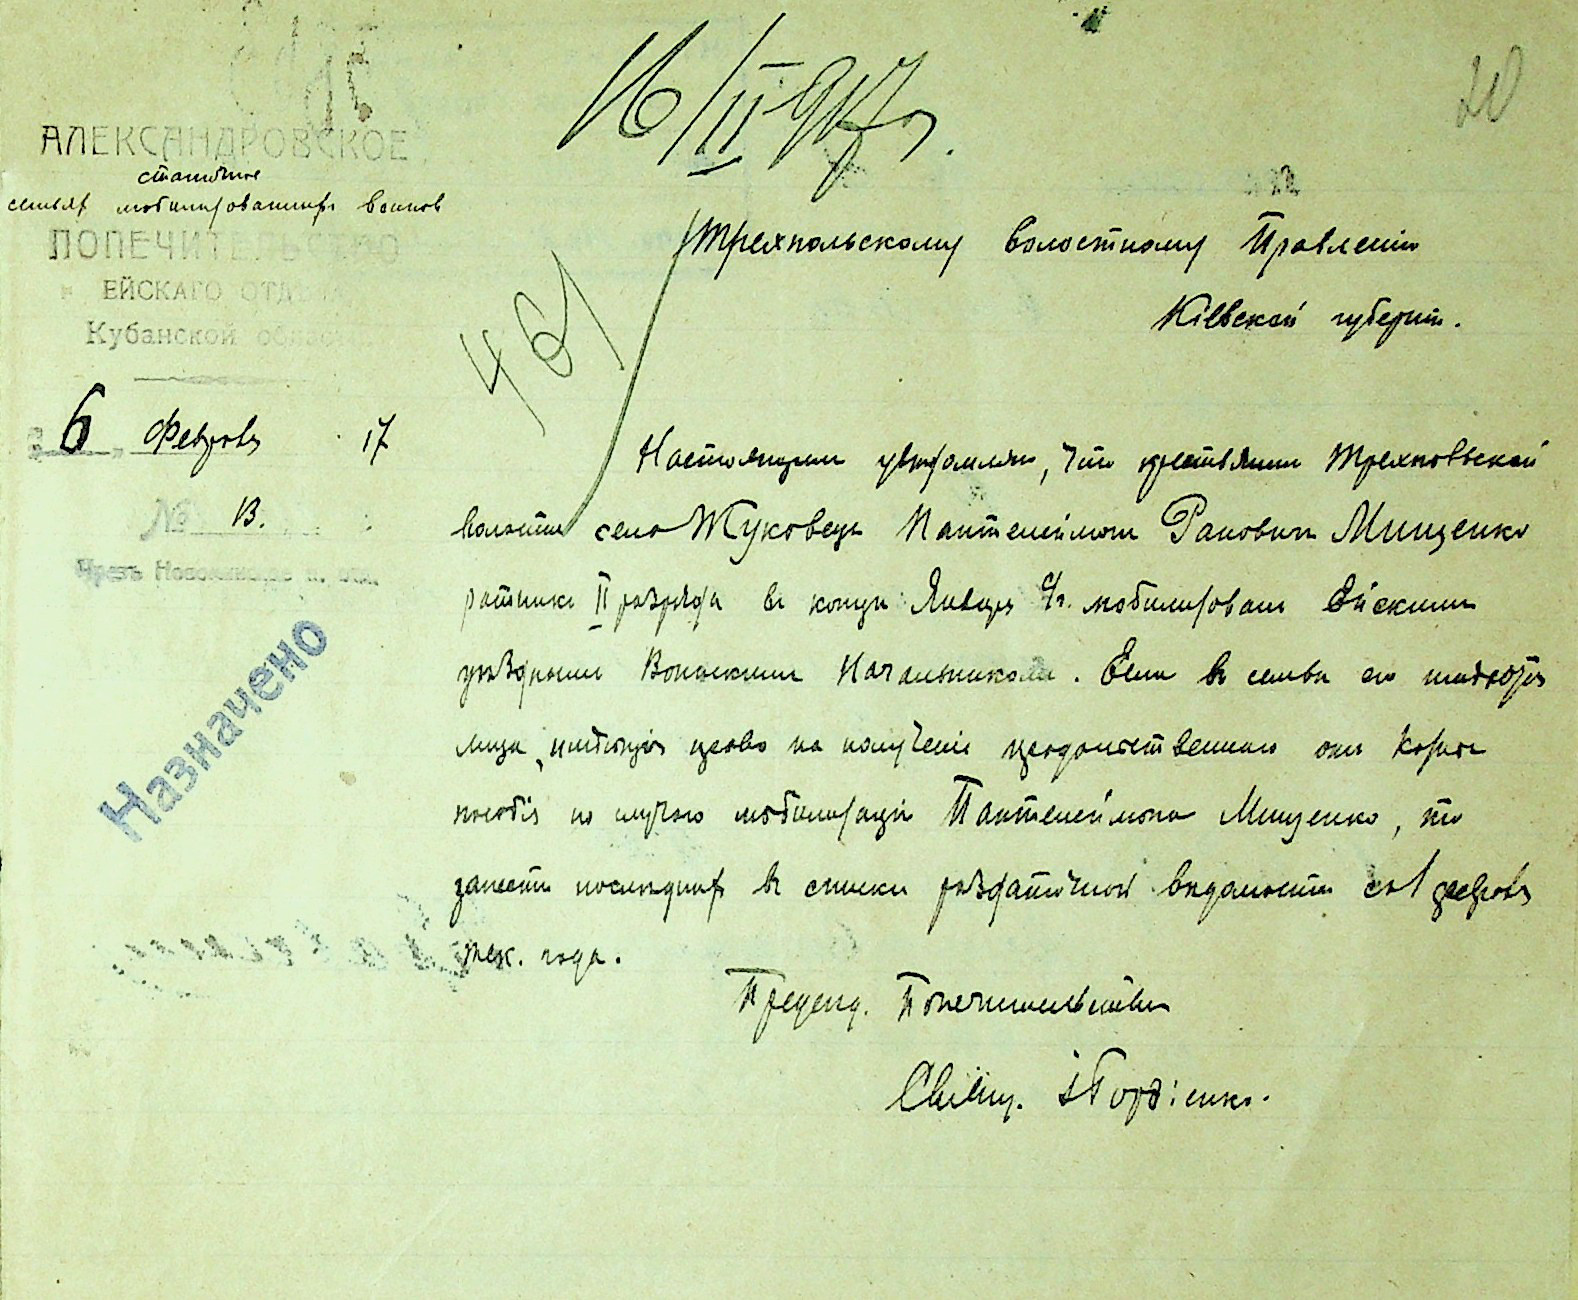 16/II 917 г.
20
АЛЕКСАНДРОВСКОЕ
станичное
семьям мобилизованных воинов
ПОПЕЧИТЕЛЬСТВО
ЕЙСКАГО ОТДѢЛА
Кубанской области
6 Февраля 17
№ 13.
Назначено
461
Трехпольскому Волостному Правленію
Кіевской губерніи.
Настоящим увѣдомляю, что крестьянин Трехпольской
волости села Жуковец Пантелеймон Мищенко
ратник II разряда в конце Января с/г. мобилизован Ейским
уѣздным Воинским Начальником. Если в семьѣ его имѣются
лица, имѣющія право на полученіе продовольственнаго или кормов.
пособія по случаю мобилизаціи Пантелеймона Мищенко, то
занести послѣдних в списки раздаточной вѣдомости с 1 февраля
тек. года.
Председ. Попечительства
Свящ. Гордіенко.